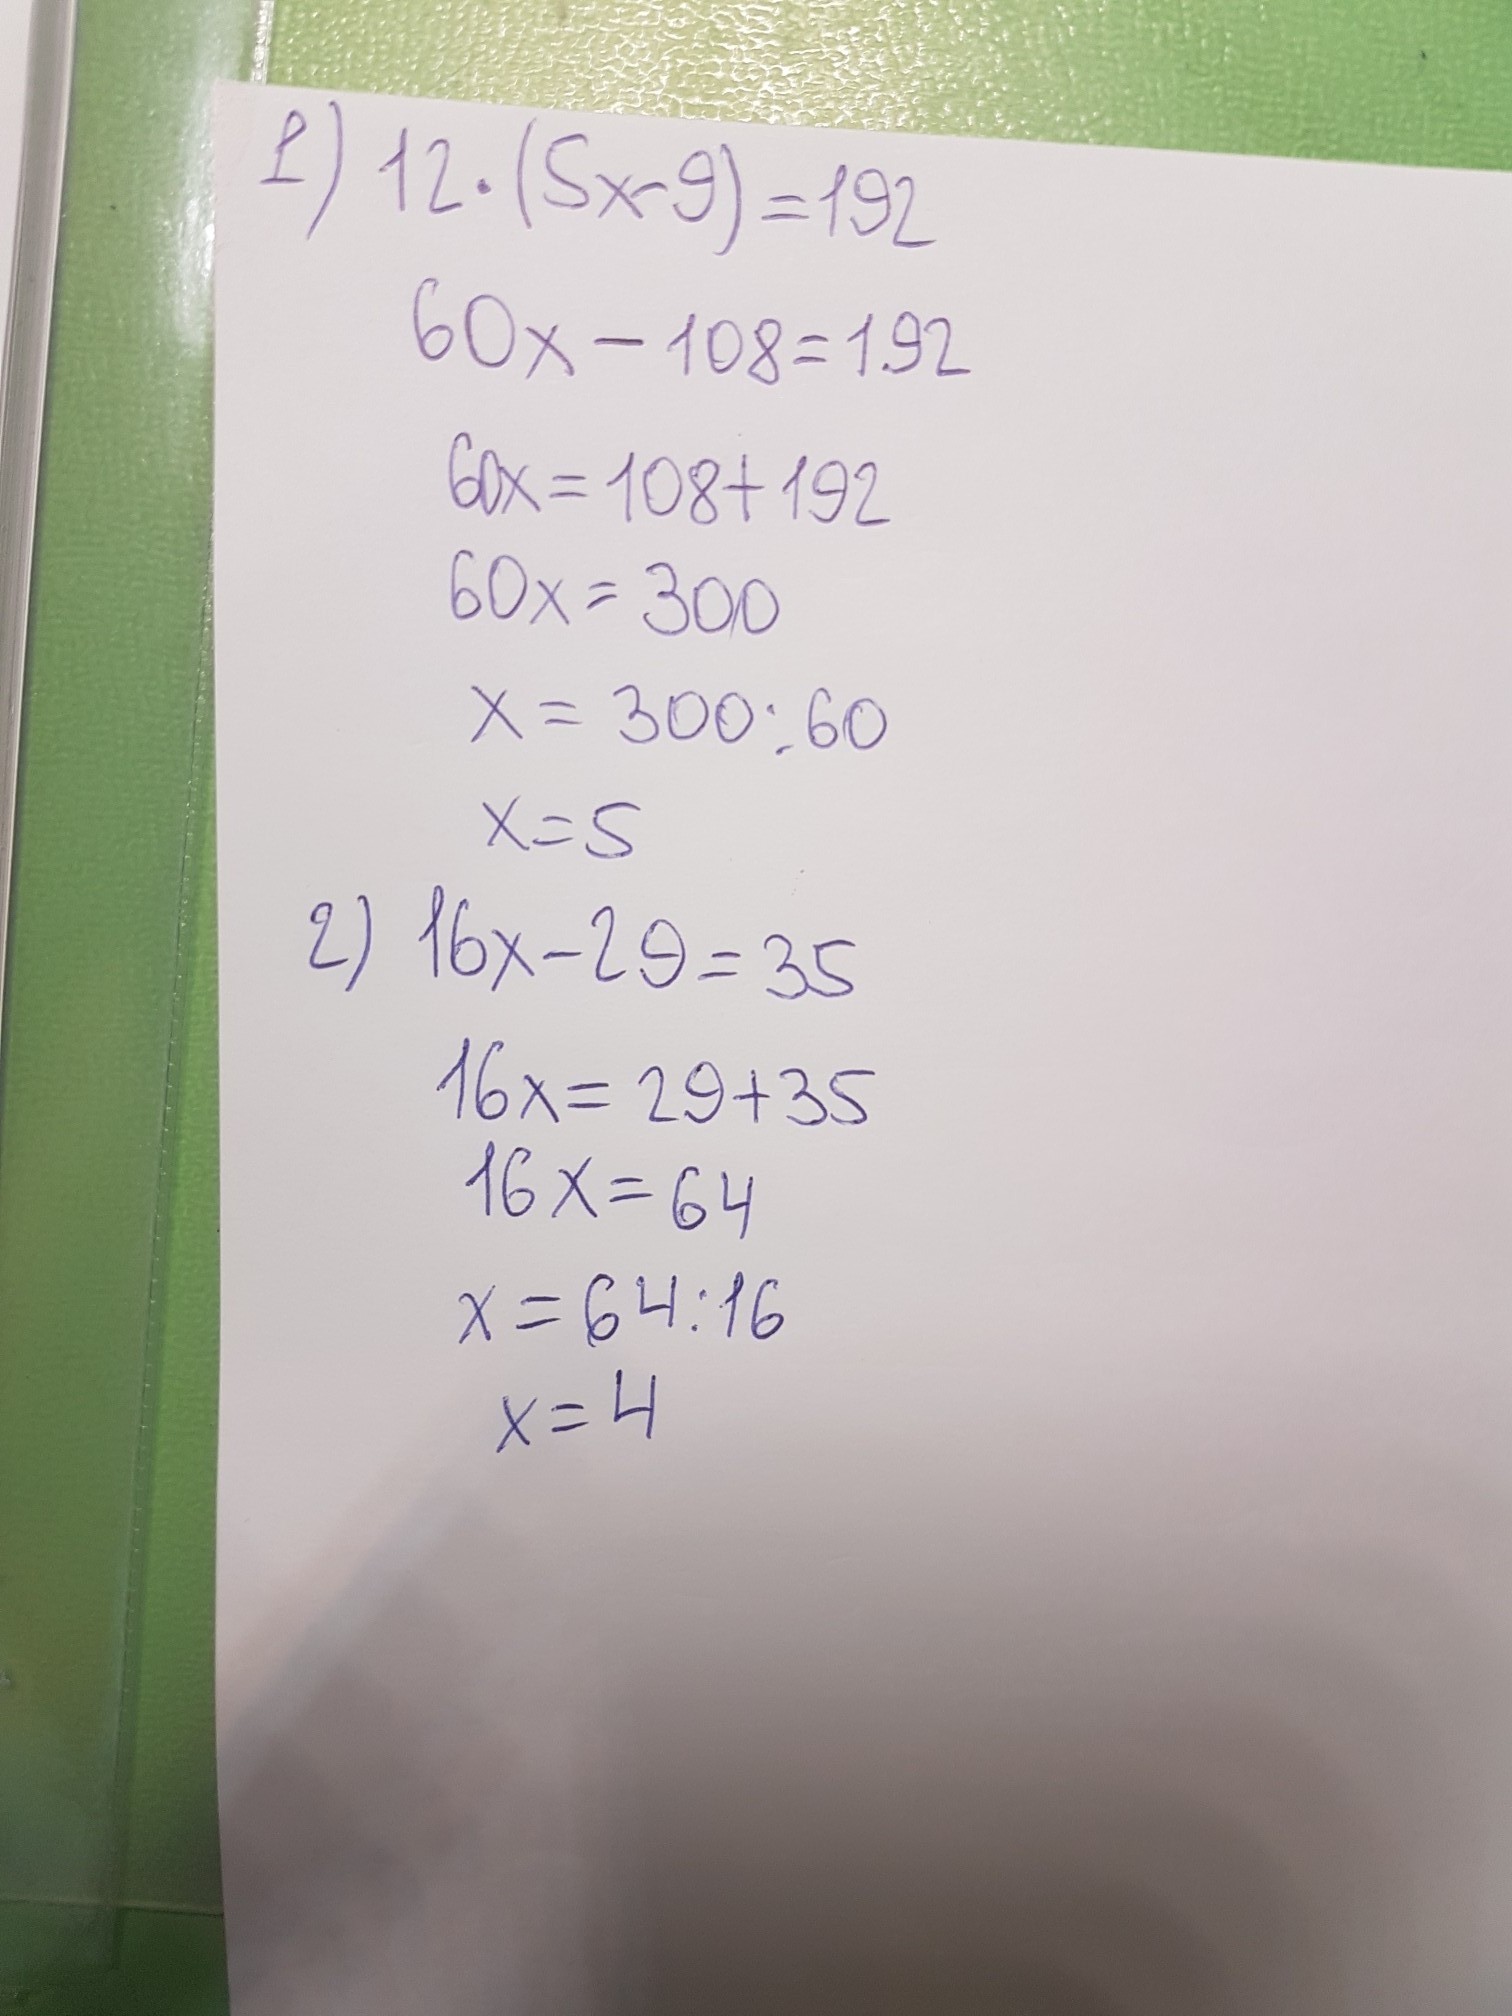 1) 12·(5x-9)=192
60x-108=192
60x=108+192
60x=300
x=300:60
x=5
2) 16x-29=35
16x=29+35
16x=64
x=64:16
x=4